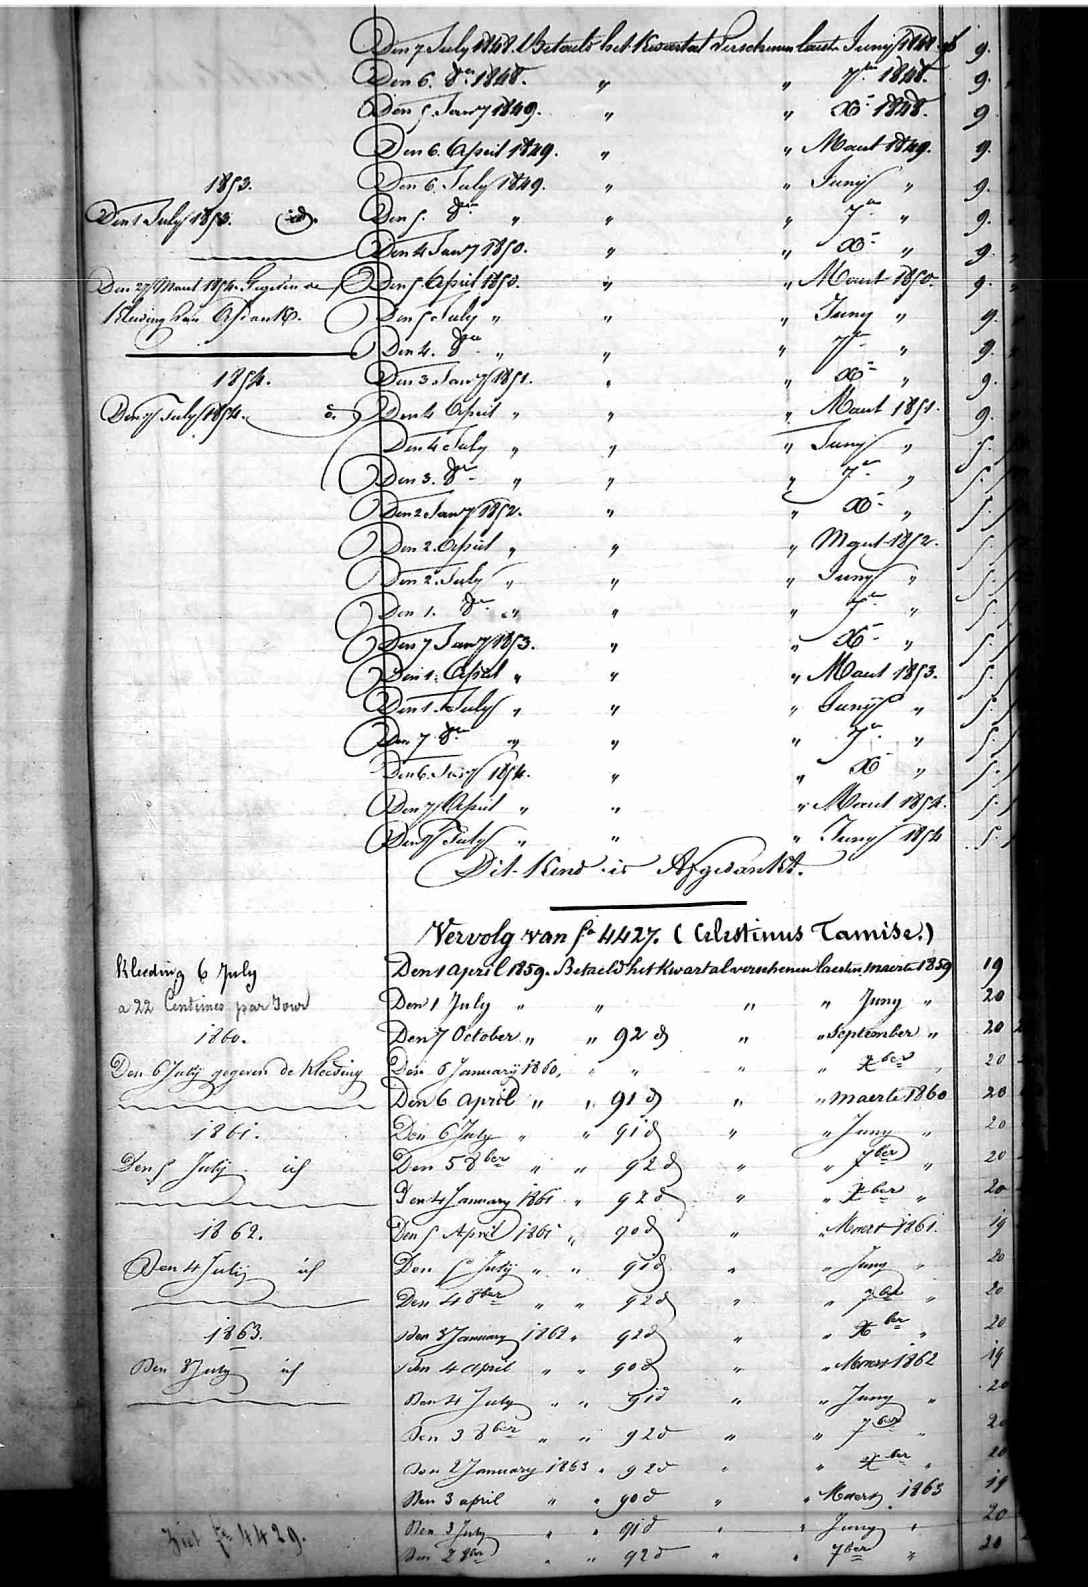 Den 7 July 1848. Betaelt het Kwartael Verschenen laest Junij 1848. f 9.
Den 6. 8er 1848. " " 7er 1848. 9.
Den 5. Janry 1849. " " Xr 1848. 9.
Den 6. April 1849. " " Maert 1849. 9.
Den 6. July 1849. " " Junij " 9.
Den 5. 8er " " " 7er " 9.
Den 4 Janry 1850. " " Xr " 9.
Den 5 April 1850. " " Maert 1850. 9.
Den 5 July " " " Juny " 9.
Den 4. 8er " " " 7er " 9.
Den 3 Janry 1851. " " Xr " 9.
Den 4 April " " " Maert 1851. 9.
Den 4 July " " " Juny " 5.
Den 3. 8er " " " 7er " 5.
Den 2 Janry 1852. " " Xr " 5.
Den 2. April " " " Maert 1852. 5.
Den 2. July " " " Juny " 5.
Den 1. 8er " " " 7er " 5.
Den 7 Janry 1853. " " Xr " 5.
Den 1. April " " " Maert 1853. 5.
Den 1. July " " " Junij " 5.
Den 7 8er " " " 7er " 5.
Den 6. Janry 1854. " " Xr " 5.
Den 7 April " " " Maert 1854. 5.
Den 7 July " " " Juny 1854 5.
Dit Kind is Afgedankt.
1853.
Den 1 July 1853. id.
Den 27 Maert 1854. Gegeven de
Kleeding van
1854.
Den 7 July 1854.
Vervolg van fo 4427. (Celestinus Tamise.)
Den 1 April 1859. Betaeld het Kwartal verschenen laesten maerte 1859 19
Den 1 July " " " " Juny " 20
Den 7 October " " 92 d " " September " 20
Den 6 January 1860, " " " " Xber " 20
Den 6 April " " 91 d " " maerte 1860 20
Den 6 July " " 91 d " " Juny " 20
Den 5 8ber " " 92 d " " 7ber " 20
Den 4 January 1861 " 92 d " " Xber " 20
Den 5 April 1861 " 90 d " " Maert 1861. 19
Den 5 July " " 91 d " " Juny " 20
Den 4 8ber " " 92 d " " 7ber " 20
Den 3 January 1862 " 92 d " " Xber " 20
Den 4 april " " 90 d " " Maert 1862 19
Den 4 July " " 91 d " " Juny " 20
Den 3 8ber " " 92 d " " 7ber " 20
Den 2 January 1863 " 92 d " " Xber " 20
Den 3 april " " 90 d " " Maert 1863 19
Den 3 July " " 91 d " " Juny " 20
Den 2 8ber " " 92 d " " 7ber " 20
Kleeding 6 July
a 22 Centimes par Jour
1860.
Den 6 July gegeven de Kleeding
1861.
Den 5 July id
1862.
Den 4 July id
1863.
Den 3 July id
Ziet fo 4429.